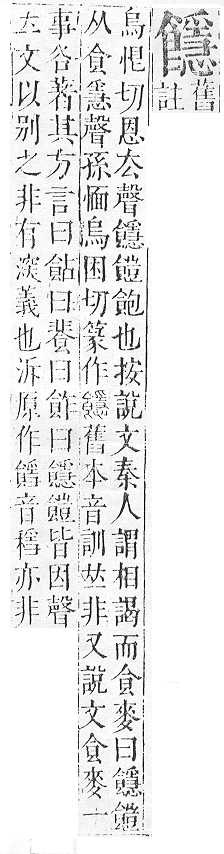 䭡
舊
註
烏恨切恩去聲䭡䭓飽也按說文秦人謂相謁而食麥曰䭡䭓
从食㥯聲孫愐烏困切篆作䭡舊本音訓𠀤非又說文食麥一
事各著其方言曰䬯曰餥曰飵曰䭡䭓皆因聲
立文以別之非有深義也泝原作音穩亦非